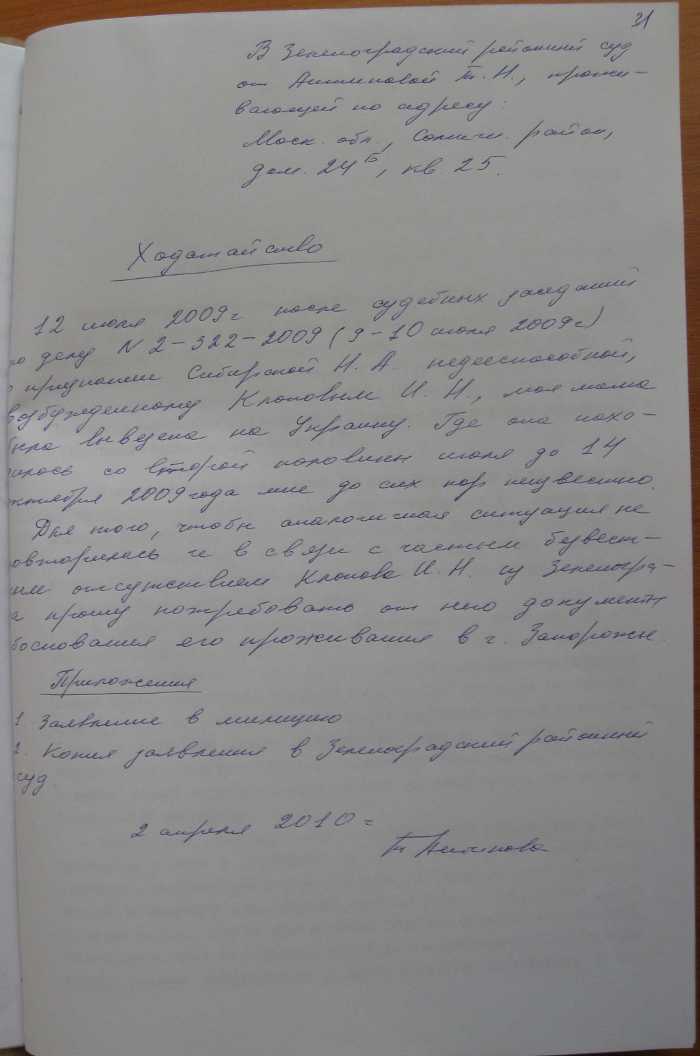 31
В Зеленоградский районный суд
от Антиповой Т. Н., прожи-
вающей по адресу:
Моск. обл., Солнечн. район,
дом. 24 Б, кв 25.
Ходатайство
12 июля 2009 г после судебных заседаний
по делу N 2-322-2009 (9-10 июля 2009 г)
о признании Сибирской Н. А. недееспособной,
возбужденному Клоповым И. Н., моя мама
была вывезена на Украину. Где она нахо-
лось со второй половины июля до 14
октября 2009 года мне до сих пор неизвестно.
Для того, чтобы аналогичная ситуация не
овторилась и в связи с частым безвест-
ым отсутствием Клопова И. Н. из Зеленогра-
а прошу потребовать от него документ
боснования его проживания в г. Запорожье
Приложения
1. Заявление в милицию
2. Копия заявления в Зеленоградский районный
суд
2 апреля 2010 г
Т Антипова